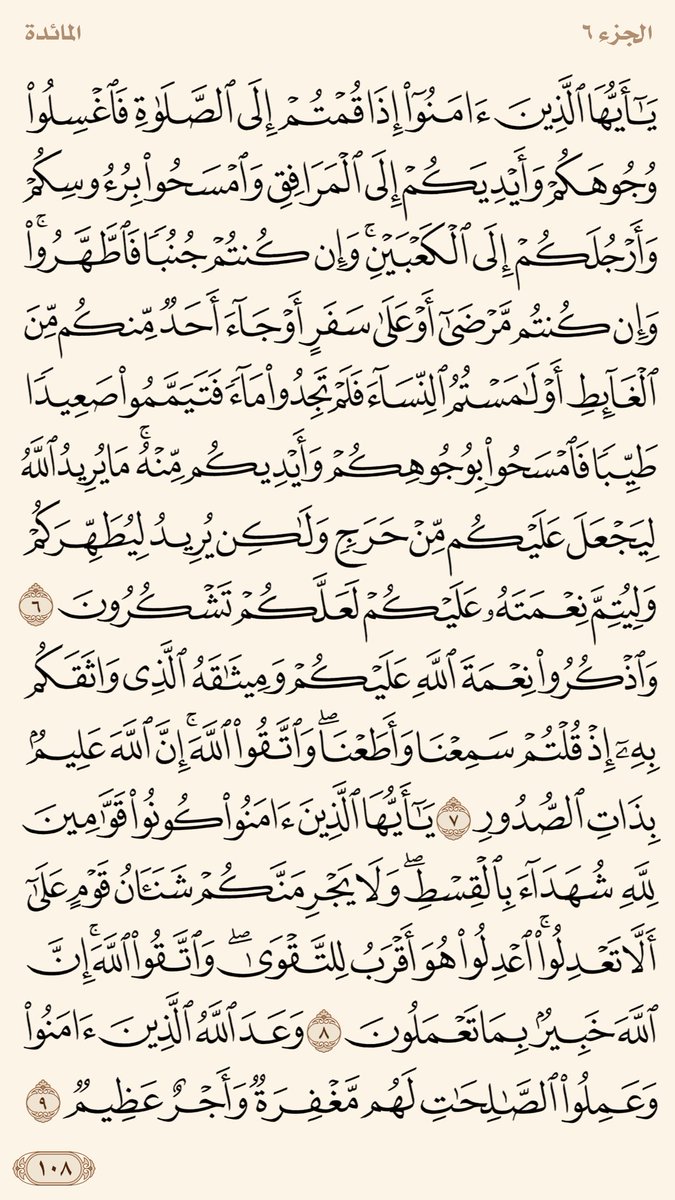 الجزء ٦
المائدة
يَـٰٓأَيُّهَا ٱلَّذِينَ ءَامَنُوٓا۟ إِذَا قُمْتُمْ إِلَى ٱلصَّلَوٰةِ فَٱغْسِلُوا۟
وُجُوهَكُمْ وَأَيْدِيَكُمْ إِلَى ٱلْمَرَافِقِ وَٱمْسَحُوا۟ بِرُءُوسِكُمْ
وَأَرْجُلَكُمْ إِلَى ٱلْكَعْبَيْنِ ۚ وَإِن كُنتُمْ جُنُبًا فَٱطَّهَّرُوا۟ ۚ
وَإِن كُنتُم مَّرْضَىٰٓ أَوْ عَلَىٰ سَفَرٍ أَوْ جَآءَ أَحَدٌ مِّنكُم مِّنَ
ٱلْغَآئِطِ أَوْ لَـٰمَسْتُمُ ٱلنِّسَآءَ فَلَمْ تَجِدُوا۟ مَآءً فَتَيَمَّمُوا۟ صَعِيدًا
طَيِّبًا فَٱمْسَحُوا۟ بِوُجُوهِكُمْ وَأَيْدِيكُم مِّنْهُ ۚ مَا يُرِيدُ ٱللَّهُ
لِيَجْعَلَ عَلَيْكُم مِّنْ حَرَجٍ وَلَـٰكِن يُرِيدُ لِيُطَهِّرَكُمْ
وَلِيُتِمَّ نِعْمَتَهُۥ عَلَيْكُمْ لَعَلَّكُمْ تَشْكُرُونَ ٦
وَٱذْكُرُوا۟ نِعْمَةَ ٱللَّهِ عَلَيْكُمْ وَمِيثَـٰقَهُ ٱلَّذِى وَاثَقَكُم
بِهِۦٓ إِذْ قُلْتُمْ سَمِعْنَا وَأَطَعْنَا ۖ وَٱتَّقُوا۟ ٱللَّهَ ۚ إِنَّ ٱللَّهَ عَلِيمٌۢ
بِذَاتِ ٱلصُّدُورِ ٧ يَـٰٓأَيُّهَا ٱلَّذِينَ ءَامَنُوا۟ كُونُوا۟ قَوَّٰمِينَ
لِلَّهِ شُهَدَآءَ بِٱلْقِسْطِ ۖ وَلَا يَجْرِمَنَّكُمْ شَنَـَٔانُ قَوْمٍ عَلَىٰٓ
أَلَّا تَعْدِلُوا۟ ۚ ٱعْدِلُوا۟ هُوَ أَقْرَبُ لِلتَّقْوَىٰ ۖ وَٱتَّقُوا۟ ٱللَّهَ ۚ إِنَّ
ٱللَّهَ خَبِيرٌۢ بِمَا تَعْمَلُونَ ٨ وَعَدَ ٱللَّهُ ٱلَّذِينَ ءَامَنُوا۟
وَعَمِلُوا۟ ٱلصَّـٰلِحَـٰتِ لَهُم مَّغْفِرَةٌ وَأَجْرٌ عَظِيمٌ ٩
١٠٨